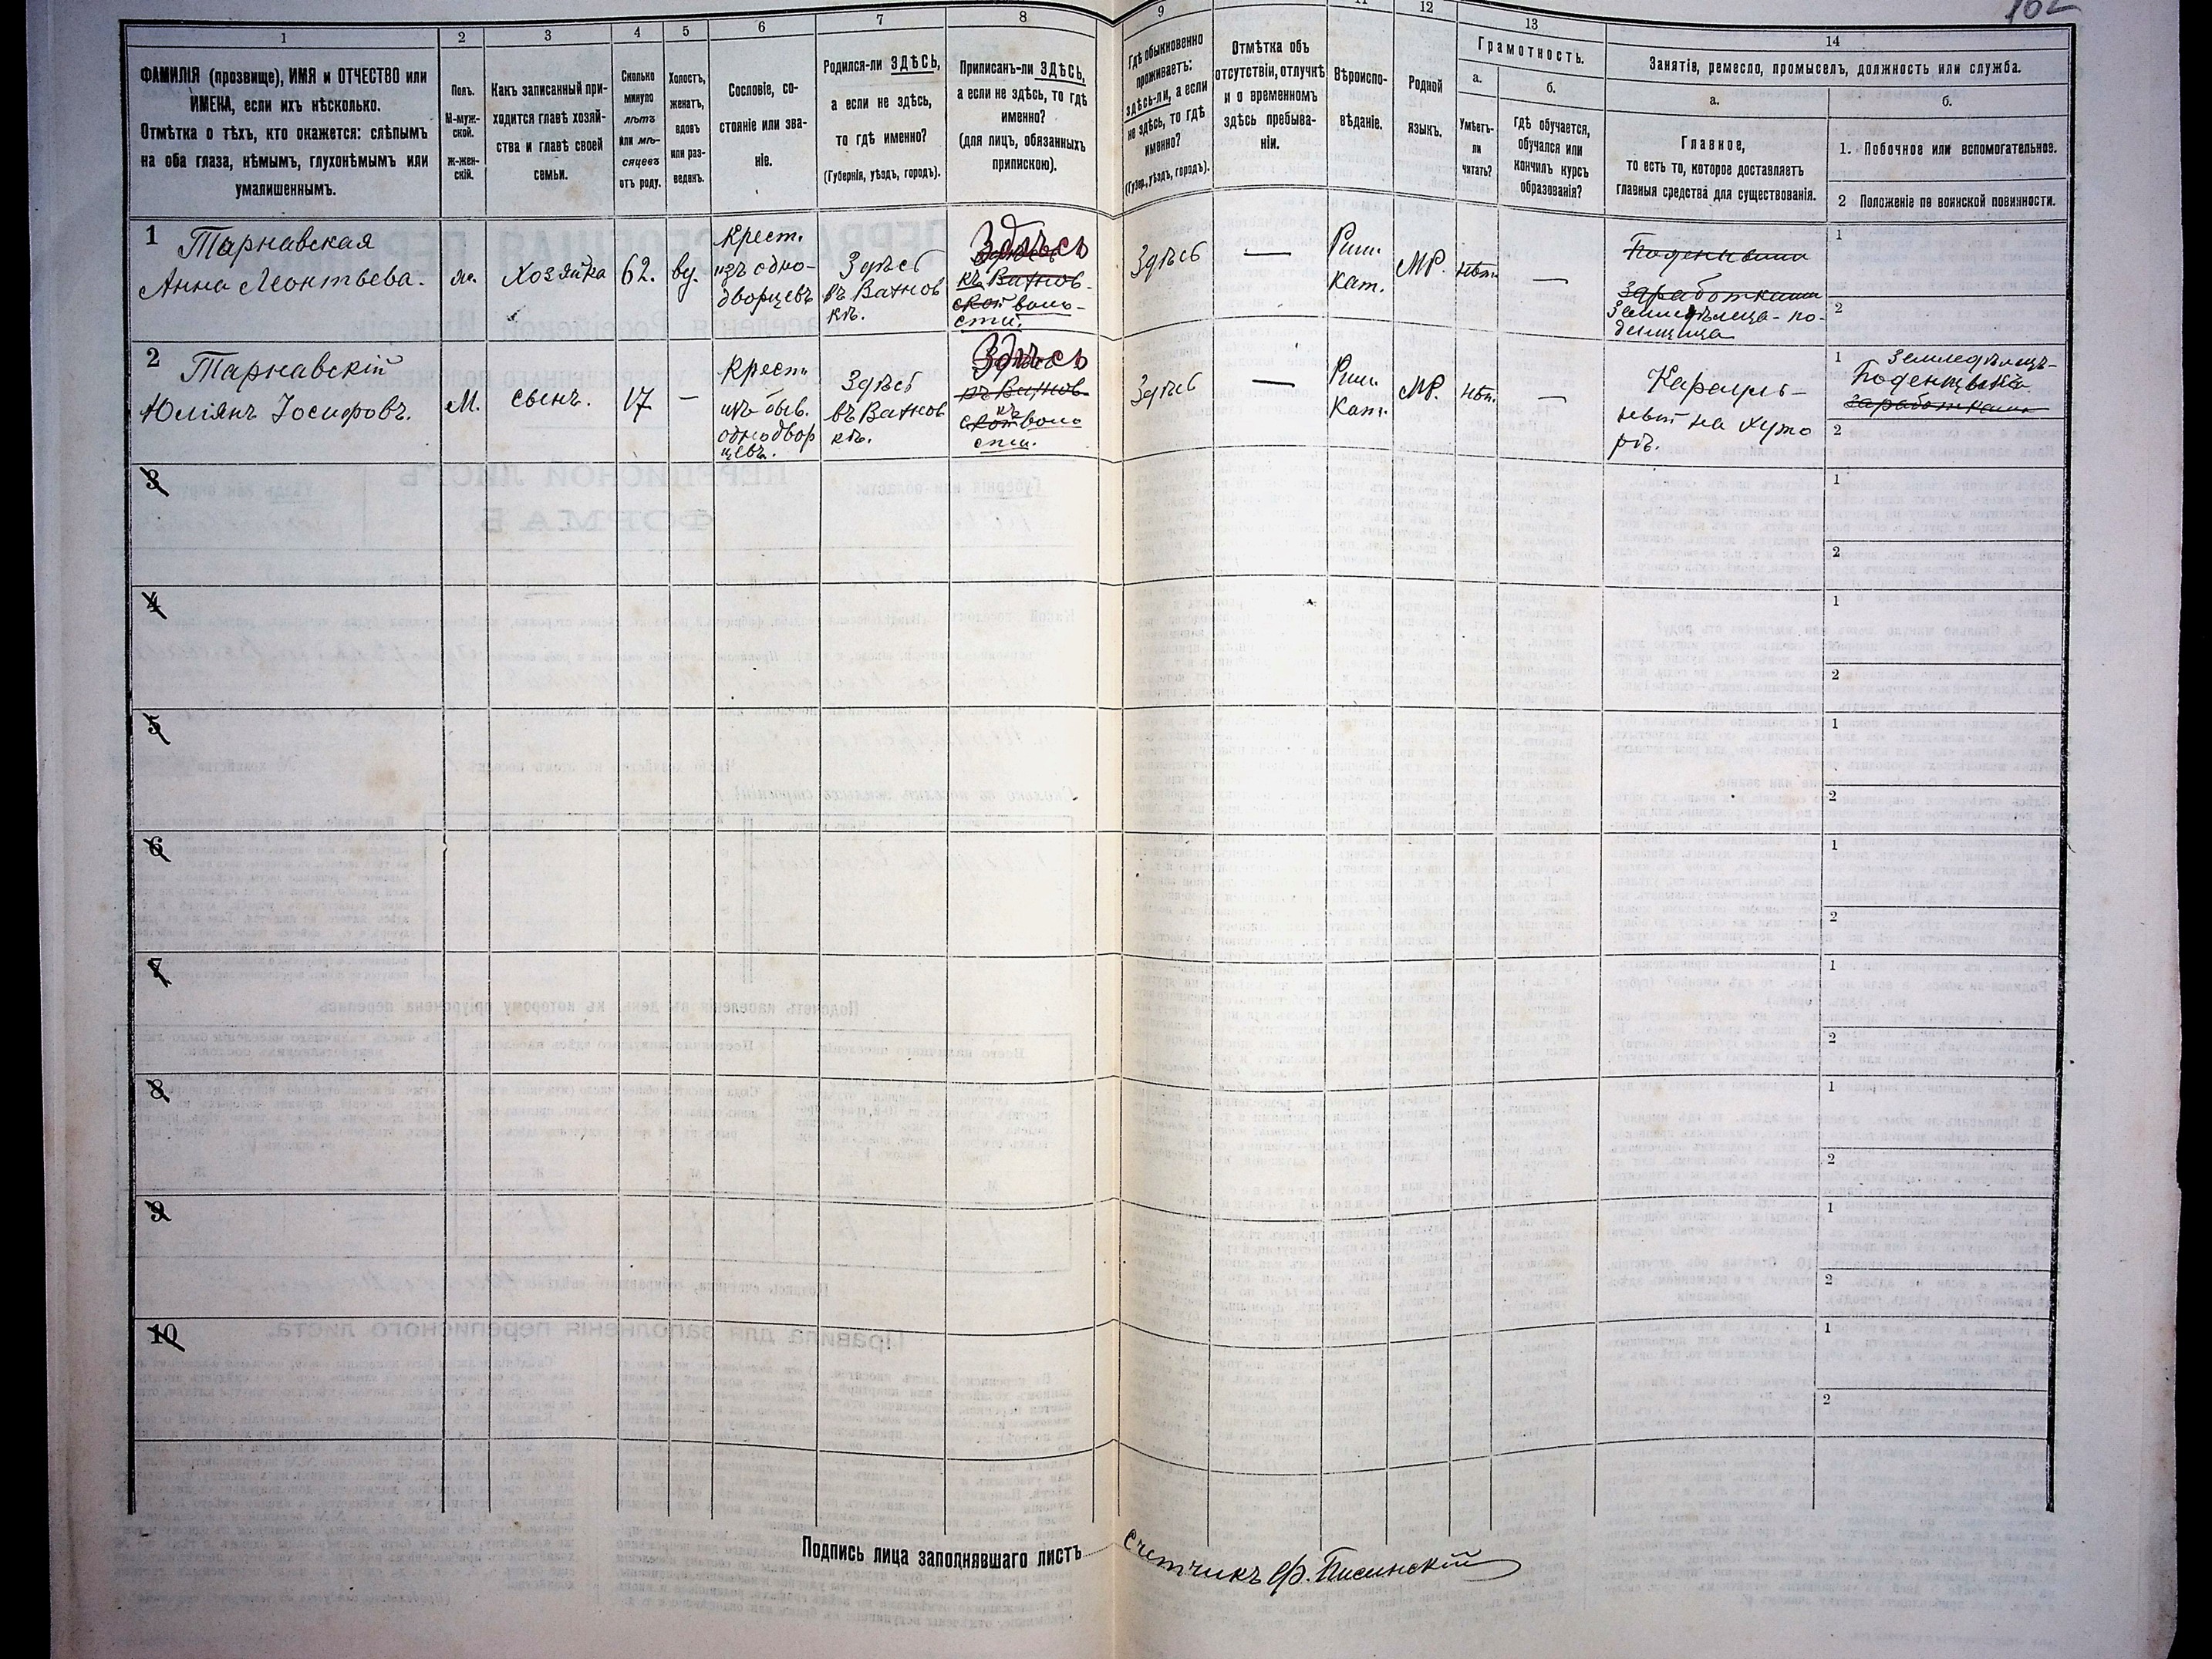 162
1
2
3
4
5
6
7
8
9
12
13
14
ФАМИЛІЯ (прозвище), ИМЯ и ОТЧЕСТВО или
ИМЕНА, если ихъ нѣсколько.
Отмѣтка о тѣхъ, кто окажется: слѣпымъ
на оба глаза, нѣмымъ, глухонѣмымъ или
умалишеннымъ.
Полъ.
М-муж-
ской.
ж-жен-
скій.
Какъ записанный при-
ходится главѣ хозяй-
ства и главѣ своей
семьи.
Сколько
минуло
лѣтъ
или мѣ-
сяцевъ
отъ роду.
Холостъ,
женатъ,
вдовъ
или раз-
веденъ.
Сословіе, со-
стояніе или зва-
ніе.
Родился-ли ЗДѢСЬ,
а если не здѣсь,
то гдѣ именно?
(Губернія, уѣздъ, городъ).
Приписанъ-ли ЗДѢСЬ,
а если не здѣсь, то гдѣ
именно?
(для лицъ, обязанныхъ
припискою).
Гдѣ обыкновенно
проживаетъ:
здѣсь-ли, а если
не здѣсь, то гдѣ
именно?
(Губер., уѣздъ, городъ).
Отмѣтка объ
отсутствіи, отлучкѣ
и о временномъ
здѣсь пребыва-
ніи.
Вѣроиспо-
вѣданіе.
Родной
языкъ.
Грамотность.
а.
Умѣетъ-
ли
читать?
б.
гдѣ обучается,
обучался или
кончилъ курсъ
образованія?
Занятіе, ремесло, промыселъ, должность или служба.
а.
Главное,
то есть то, которое доставляетъ
главныя средства для существованія.
б.
1. Побочное или вспомогательное.
2 Положеніе по воинской повинности.
1 Тарнавская
Анна Леонтьева.
Хозяйка
62.
ву.
Крест.
изъ одно-
дворцевъ
Здѣсь
въ Ватнов
кѣ.
Здѣсь
къ Ватнов-
ской воло-
сти.
Здѣсь
—
Рим.
Кат.
МР.
Нѣт.
—
Заработками
Земледѣлица-по-
денщица
1
2
2 Тарнавскій
Юліянъ Іосифовъ.
М.
сынъ.
17
—
Крест.
изъ быв.
однодвор
цевъ.
Здѣсь
въ Ватнов
кѣ.
Здѣсь
къ Ватнов
ской воло
сти.
Здѣсь
—
Рим.
Кат.
МР.
Нѣт.
—
Караул-
на хуто
рѣ.
1 Земледѣлецъ-
заработками
2
3
1
2
4
1
2
5
1
2
6
1
2
7
1
2
8
1
2
9
1
2
10
1
2
Подпись лица заполнявшаго листъ
Счетчикъ Ф. Писинскій